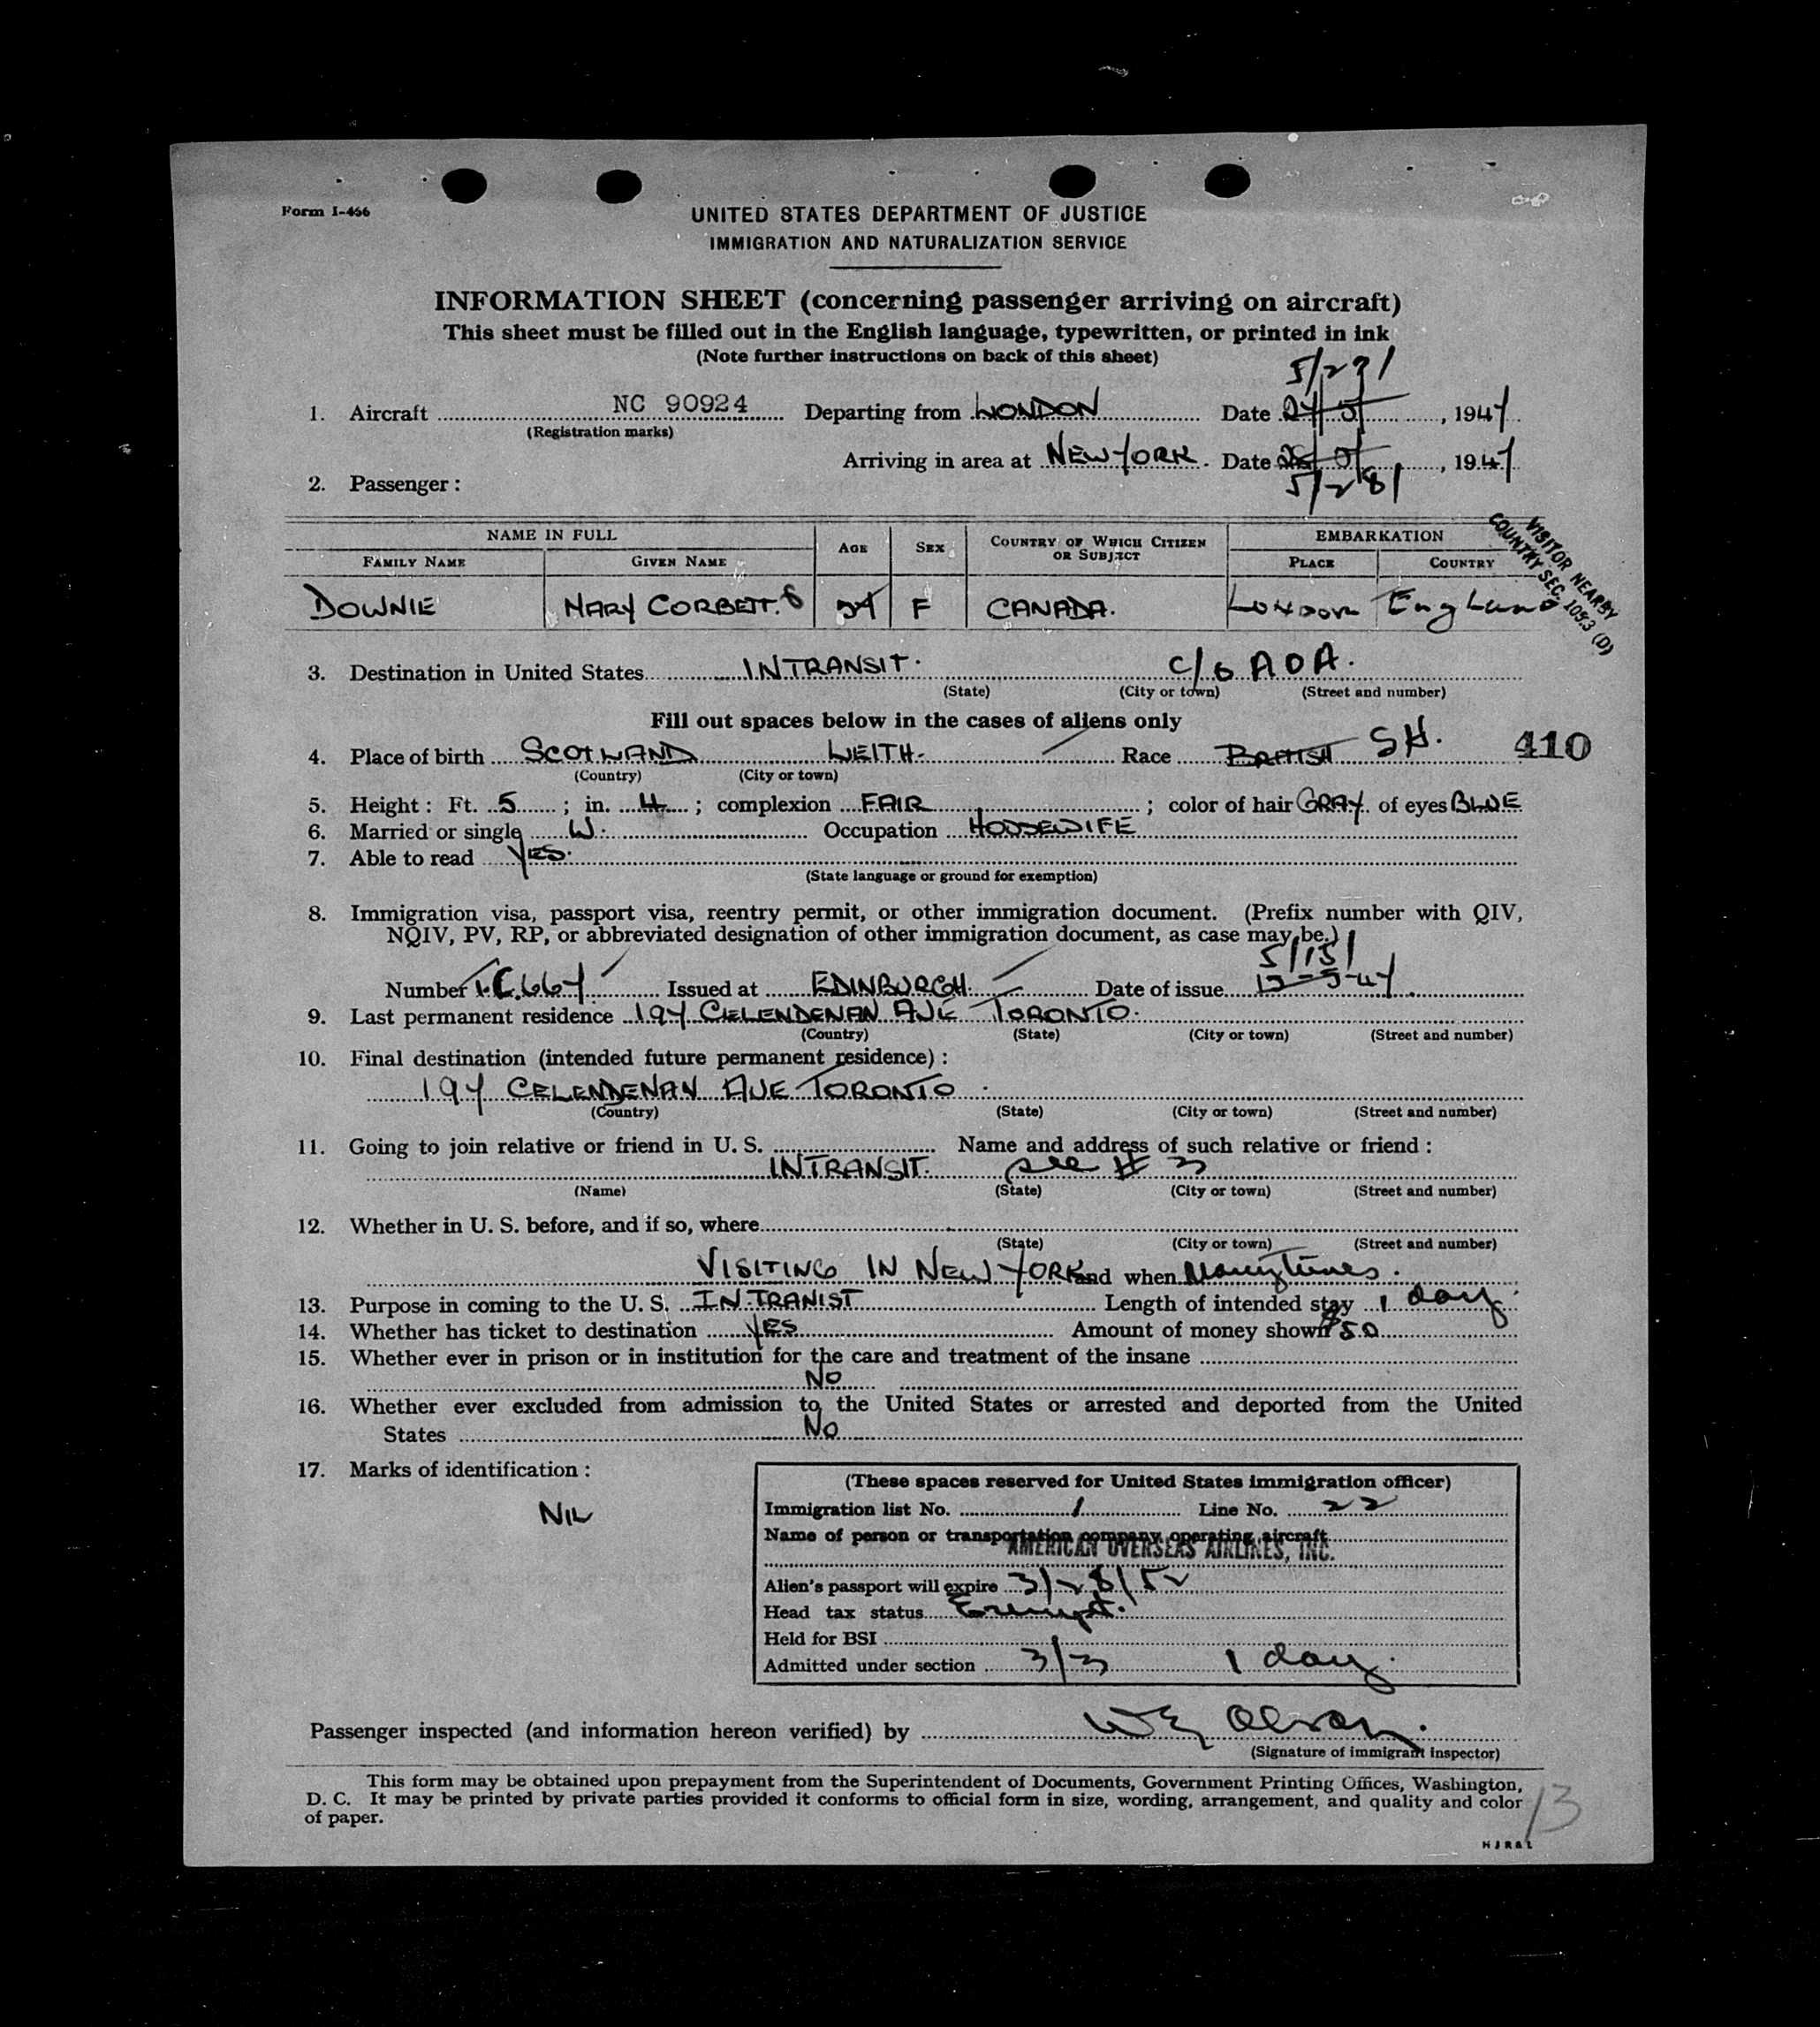 Form I-466
UNITED STATES DEPARTMENT OF JUSTICE
IMMIGRATION AND NATURALIZATION SERVICE
INFORMATION SHEET (concerning passenger arriving on aircraft)
This sheet must be filled out in the English language, typewritten, or printed in ink
(Note further instructions on back of this sheet)
5/27/
1. Aircraft NC 90924 Departing from LONDON Date 27/5/, 1947
(Registration marks)
Arriving in area at NEW YORK. Date 5/, 1947
5/28/
2. Passenger:
VISITOR NEARBY
COUNTRY SEC. 105.3 (D)
NAME IN FULL AGE SEX COUNTRY OF WHICH CITIZEN OR SUBJECT EMBARKATION
FAMILY NAME GIVEN NAME PLACE COUNTRY
DOWNIE MARY CORBETT. F CANADA. London England
3. Destination in United States INTRANSIT. C/o AOA.
(State) (City or town) (Street and number)
Fill out spaces below in the cases of aliens only
4. Place of birth SCOTLAND LEITH. Race BRITISH SH. 410
(Country) (City or town)
5. Height: Ft. 5; in. 4; complexion FAIR; color of hair GRAY. of eyes BLUE
6. Married or single W. Occupation HOUSEWIFE
7. Able to read YES.
(State language or ground for exemption)
8. Immigration visa, passport visa, reentry permit, or other immigration document. (Prefix number with QIV,
NQIV, PV, RP, or abbreviated designation of other immigration document, as case may be.)
5/15/
Number T.C.667 Issued at EDINBURGH. Date of issue 15-5-47
9. Last permanent residence 197 CELENDENAN AVE TORONTO.
(Country) (State) (City or town) (Street and number)
10. Final destination (intended future permanent residence):
197 CELENDENAN AVE TORONTO.
(Country) (State) (City or town) (Street and number)
11. Going to join relative or friend in U. S. Name and address of such relative or friend:
INTRANSIT. see # 3
(Name) (State) (City or town) (Street and number)
12. Whether in U. S. before, and if so, where
(State) (City or town) (Street and number)
VISITING IN NEW YORK and when Many Times.
13. Purpose in coming to the U. S. IN TRANIST Length of intended stay 1 day.
14. Whether has ticket to destination YES Amount of money shown $50
15. Whether ever in prison or in institution for the care and treatment of the insane
NO
16. Whether ever excluded from admission to the United States or arrested and deported from the United
States NO
17. Marks of identification:
NIL
(These spaces reserved for United States immigration officer)
Immigration list No. 1 Line No. 22
Name of person or transportation company operating aircraft
AMERICAN OVERSEAS AIRLINES, INC.
Alien's passport will expire 3/28/52
Head tax status Exempt.
Held for BSI
Admitted under section 3/3 1 day.
Passenger inspected (and information hereon verified) by W E Olson.
(Signature of immigrant inspector)
This form may be obtained upon prepayment from the Superintendent of Documents, Government Printing Offices, Washington,
D. C. It may be printed by private parties provided it conforms to official form in size, wording, arrangement, and quality and color
of paper.
13